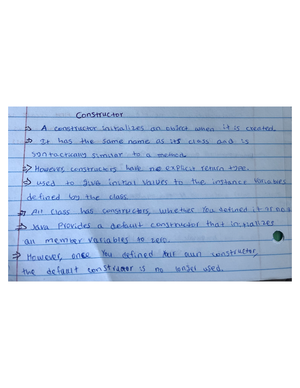 Constructor
⇒ A constructor initializes an object when it is created.
⇒ It has the same name as its class and is
syntactually similar to a method.
⇒ However, constructors have no explicit return type.
⇒ used to Java initial values to the instance variables
defined by the class.
⇒ All class has constructors, whether you defined it or not
⇒ Java provides a default constructor that initializes
all member variables to zero.
⇒ However, once you defined own constructor,
the default constructor is no longer used.